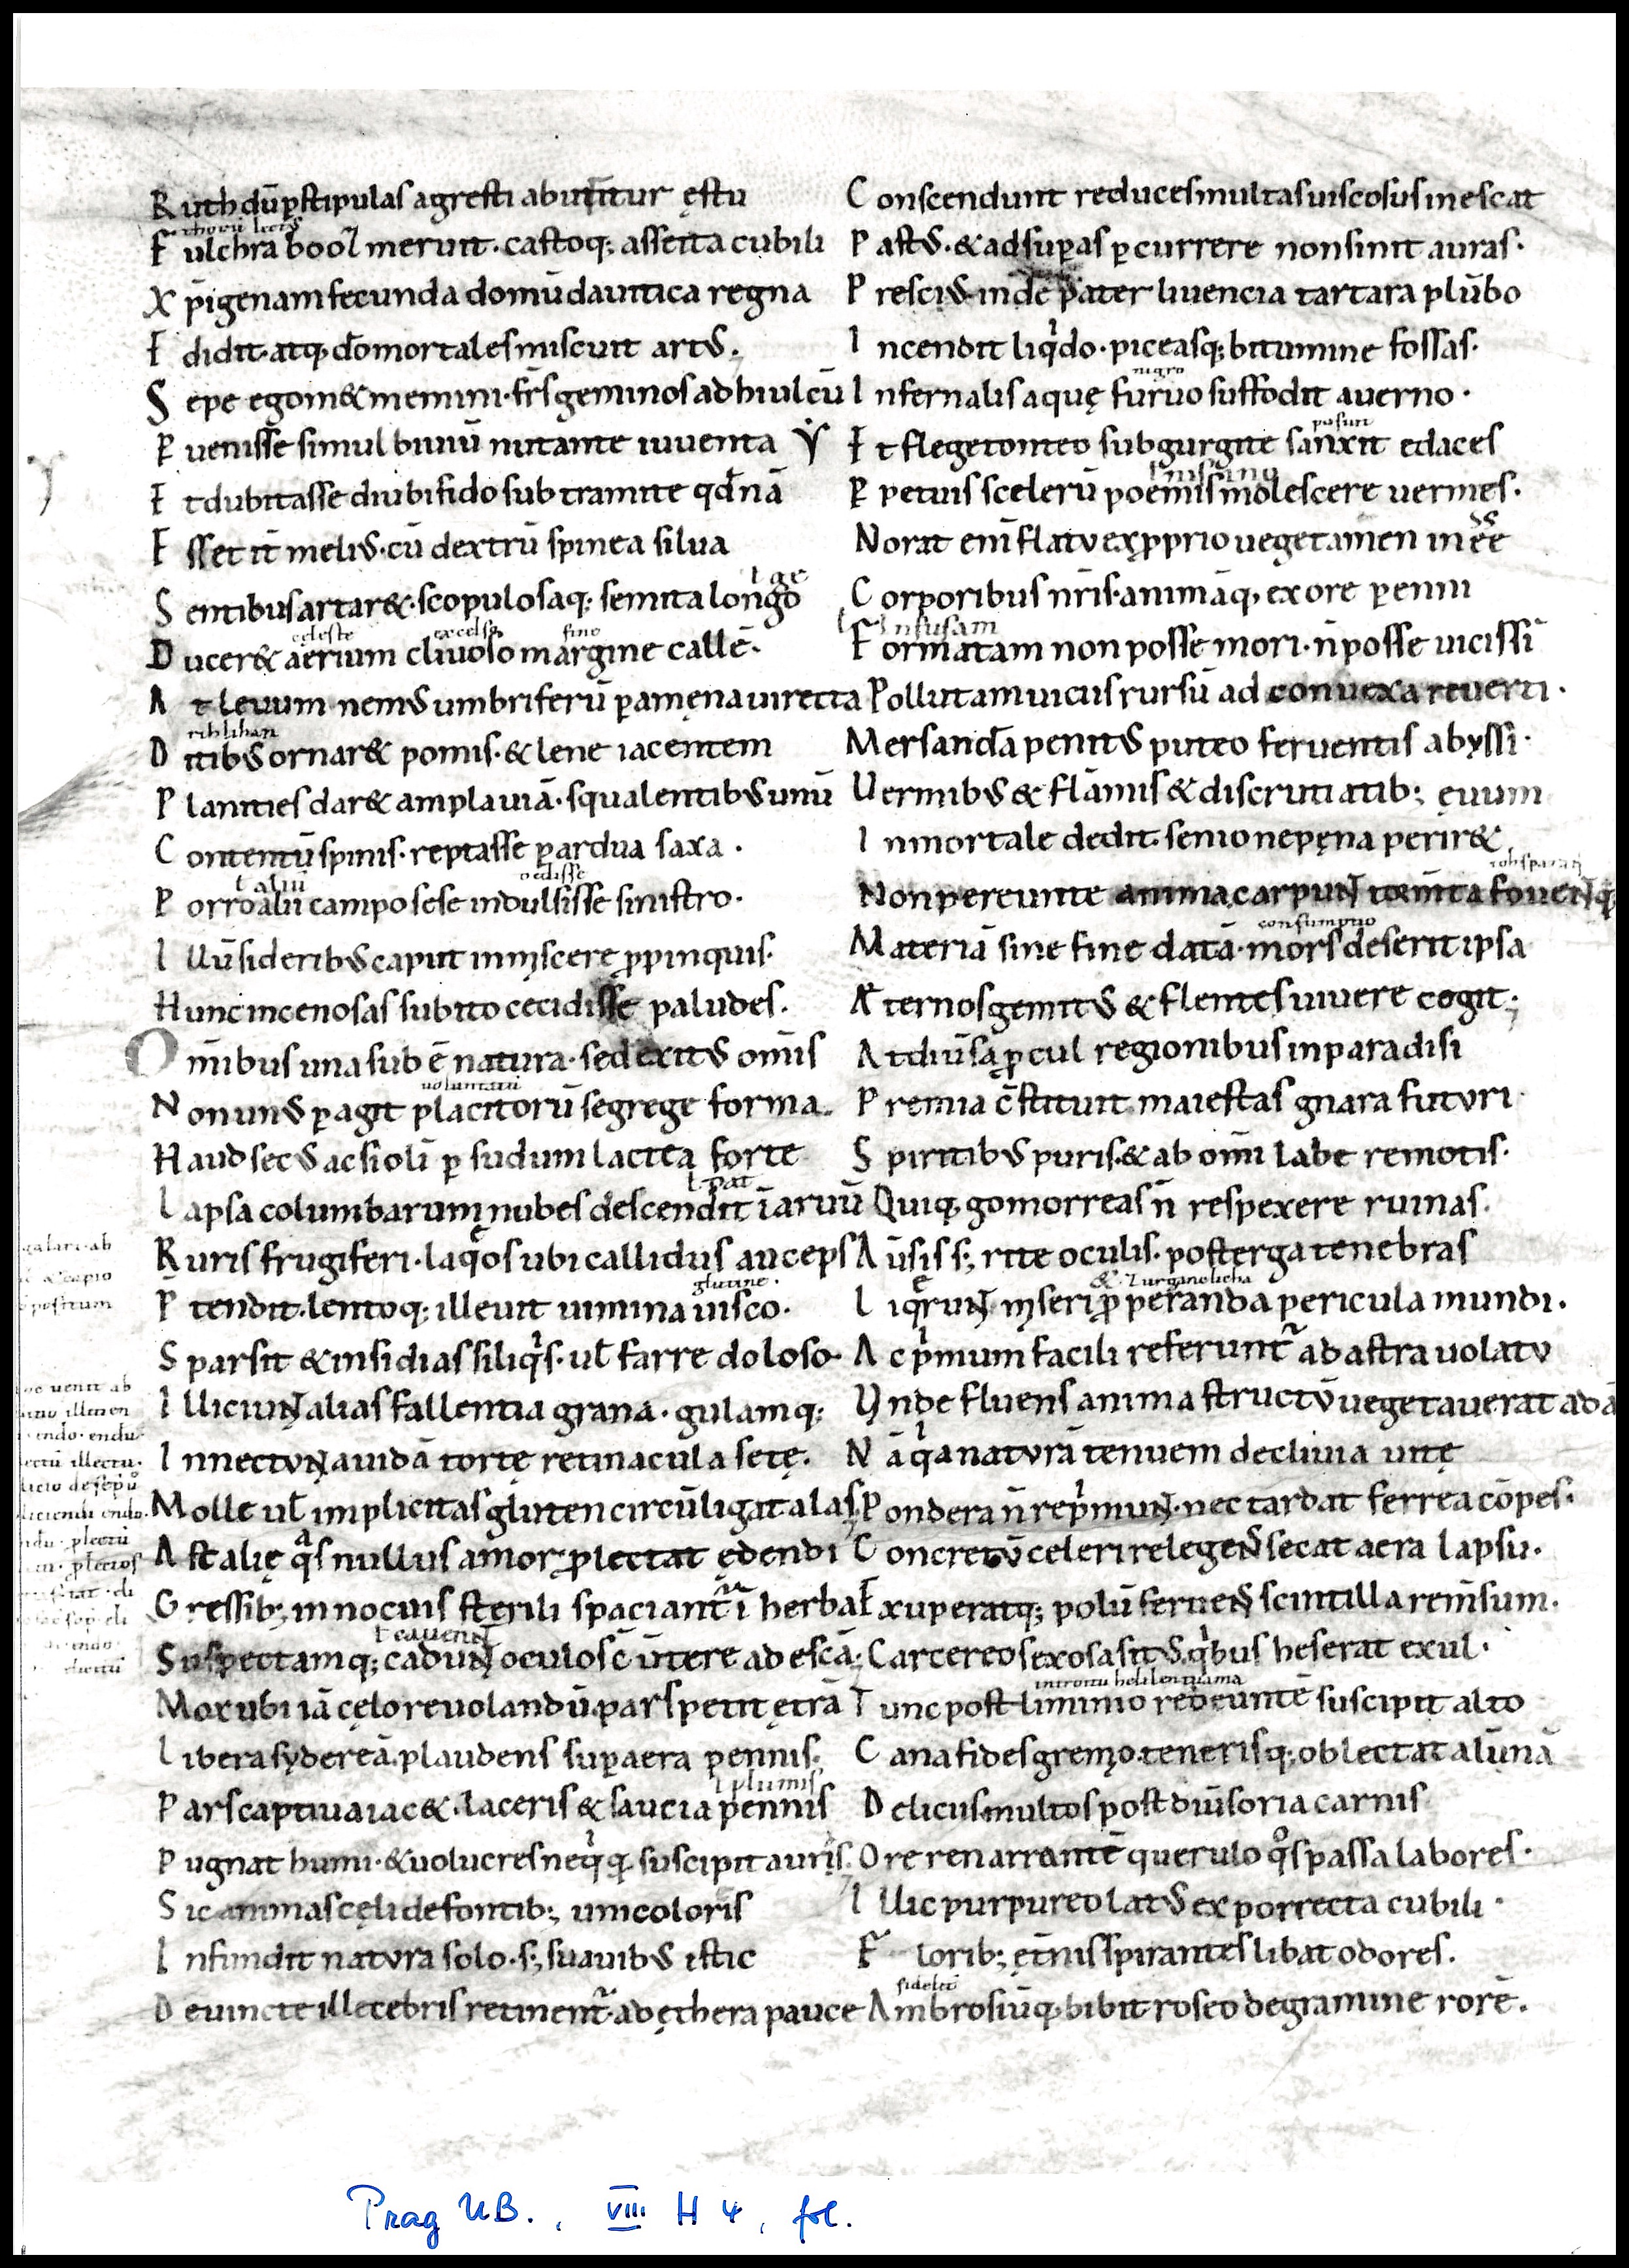 Ruth dū ꝑ stipulas agresti abutitur ęstu
Fulchra booz meruit. castoq; asscita cubili
Xp̄igenam fecunda domū dauitica regna
Edidit. atq, do mortales miscuit artꝰ.
Sepe egom& memini. fr̄s geminos ad hiulcū
Puenisse simul biuiū nutante iuuenta Y
Et dubitasse diu bifido sub tramite qđnā
Esset it̄ meliꝰ. cū dextrū spinea silua
l ge
Sentibus artar&. scopulosaq; semita longo
celeste excelso fine
Ducer& aerium cliuoso margine callē.
At leuum nemꝰ umbriferū ꝑ amęna uirecta
Ditibꝰ ornar& pomis. & lene iacentem
Planities dar& amplā uiā. squalentibꝰ unū
Contentū spinis. reptasse ꝑ ardua saxa.
l aliū
Porro aliū campo sese indulsisse sinistro.
Illū sideribꝰ caput inmiscere ꝓpinquis.
Hunc in cenosas subito cecidisse paludes.
Om̄ibus una subē natura. sed exitꝰ om̄is
Non unꝰ ꝑagit placitorū segrege forma.
Haud secꝰ ac si olī ꝑ sudum lactea forte
l pat
Lapsa columbarum nubes descendit ī aruū
Ruris frugiferi. laqͦos ubi callidus auceps
glutine.
P̄tendit. lentoq; illeuit uimina uisco.
Sparsit & insidias siliqͥs. uł farre doloso.
Illiciunt alias fallentia grana. gulamq;
Innectunt auidā tortę retinacula setę.
Molle uł implicitas gluten circūligat alas.
Ast alię qͣs nullus amor ꝓlectat ędendi
Gressib; innocuis sterili spaciant̄ ī herba
l cauent
Suspectamq; cadunt oculos c̄uertere ad escā.
Mox ubi iā cęlo reuolandū. pars petit ętrā
Libera syderęā. plaudens suꝑ aera pennis.
l plumis
Pars captiua iac&. laceris & saucia pennis
Pugnat humi. & uolucres neqͥq, suscipit auris.
Sic animas cęli de fontib; unicoloris
Infundit natvra solo. s; suauibꝰ istic
Deuincte illecebris retinent̄. ad ęthera pauce
Conscendunt reduces multas uiscosus inescat
Pastꝰ. & ad suꝑas ꝑcurrere non sinit auras.
Presciꝰ inde pater liuencia tartara plūbo
Incendit liqͥdo. piceasq; bitumine fossas.
nigro
Infernalis aquę furuo suffodit auerno.
posuit
Et flegetonteo sub gurgite sanxit edaces
Ꝑpetuis scelerū poenis inolescere uermes.
Norat eni flatv ex ꝓprio uegetamen inēe
Corporibus nr̄is. animāq, ex ore ꝑenni
l Infusam
Formatam non posse mori. n̄ posse uicissī
Pollutam uiciis rursū ad conuexa reuerti.
Mersandā penitꝰ puteo feruentis abyssi.
Uermibꝰ & flāmis & discruciatib; ęuum
Inmortale dedit. senio ne pęna perir&
Non pereunte anima. carpunt torm̄ta fouentq,
consumptio
Materiā sine fine datā. mors deserit ipsa
Æternos gemitꝰ & flentes uiuere cogit;
At diūsa ꝓcul regionibus in paradisi
Premia c̄stituit maiestas gnara futvri
Spiritibꝰ puris. & ab om̄i labe remotis.
Quiq, gomorreas n̄ respexere ruinas.
Aūsis s; rite oculis. post terga tenebras
Liqͤrunt miseri ꝓperanda pericula mundi.
Ac pͥmum facili referunt̄ ad astra uolatv
Unde fluens anima structv̄ uegetauerat adā
Nā qͥa natvrā tenuem decliuia uitę
Pondera n̄ repͥmunt. nec tardat ferrea cōpes.
Concretv̄ celeri relegens secat aera lapsu.
Exuperatq; polū feruens scintilla remēsum.
Carcereos exosa sitꝰ. qͥbus heserat exul.
Tunc postliminio redeuntē suscipit alto
Cana fides gremio. tenerisq; oblectat alūnā
Delicus. multos post diūsoria carnis
Ore renarrantē querulo qͦs passa labores.
Illic purpureo latꝰ exporrecta cubili.
Florib; ęt̄nis spirantes libat odores.
Ambrosiūq, bibit roseo de gramine rorē.
Prag UB., VIII H 4, fol.